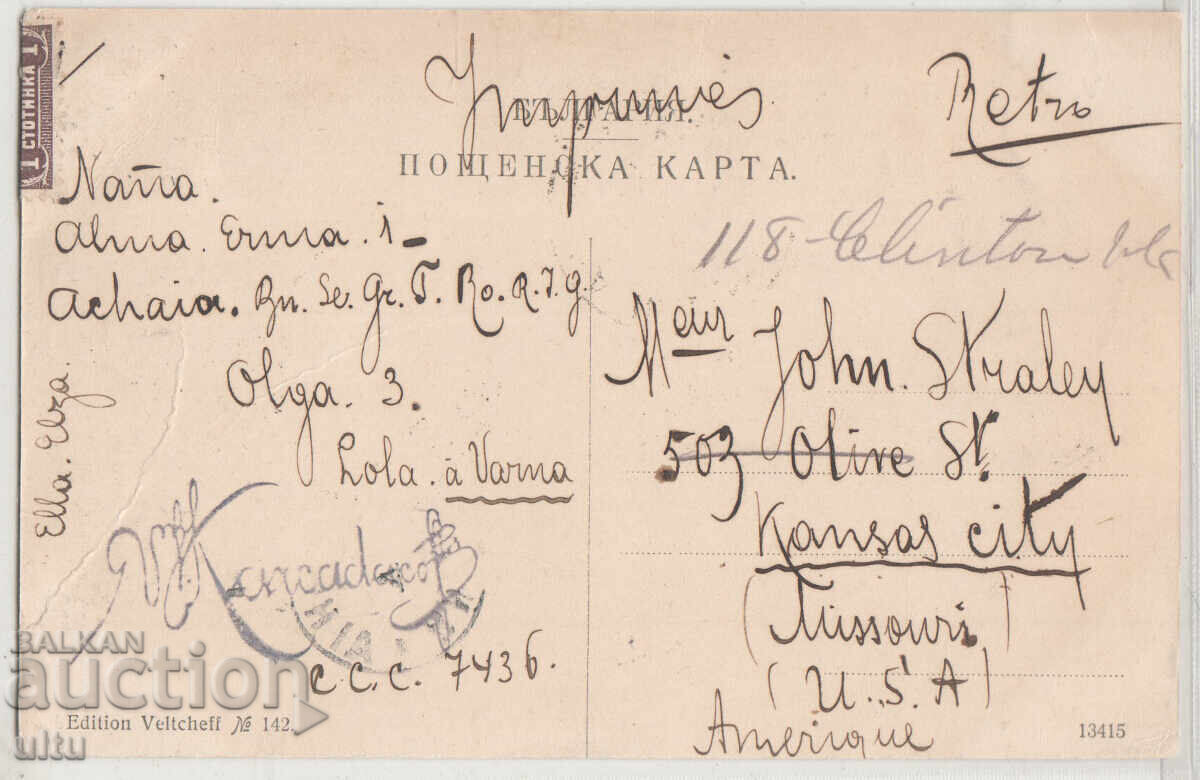 1 СТОТИНКА 1
Imprimés
Retro
БЪЛГАРИЯ.
ПОЩЕНСКА КАРТА.
118 Clinton
Nama.
Alma. Erma. 1-
Achaia. Bn. Se. Gr. T. Ro. R. J. G.
Olga. 3.
Lola. à Varna
Ella. Elza.
C.C.C. 7436.
Meur John. Straley
503 Olive St.
Kansas City
(Missouri)
(U.S.A)
Amérique
Edition Veltcheff № 142.
13415
BALKAN
auction
ultu